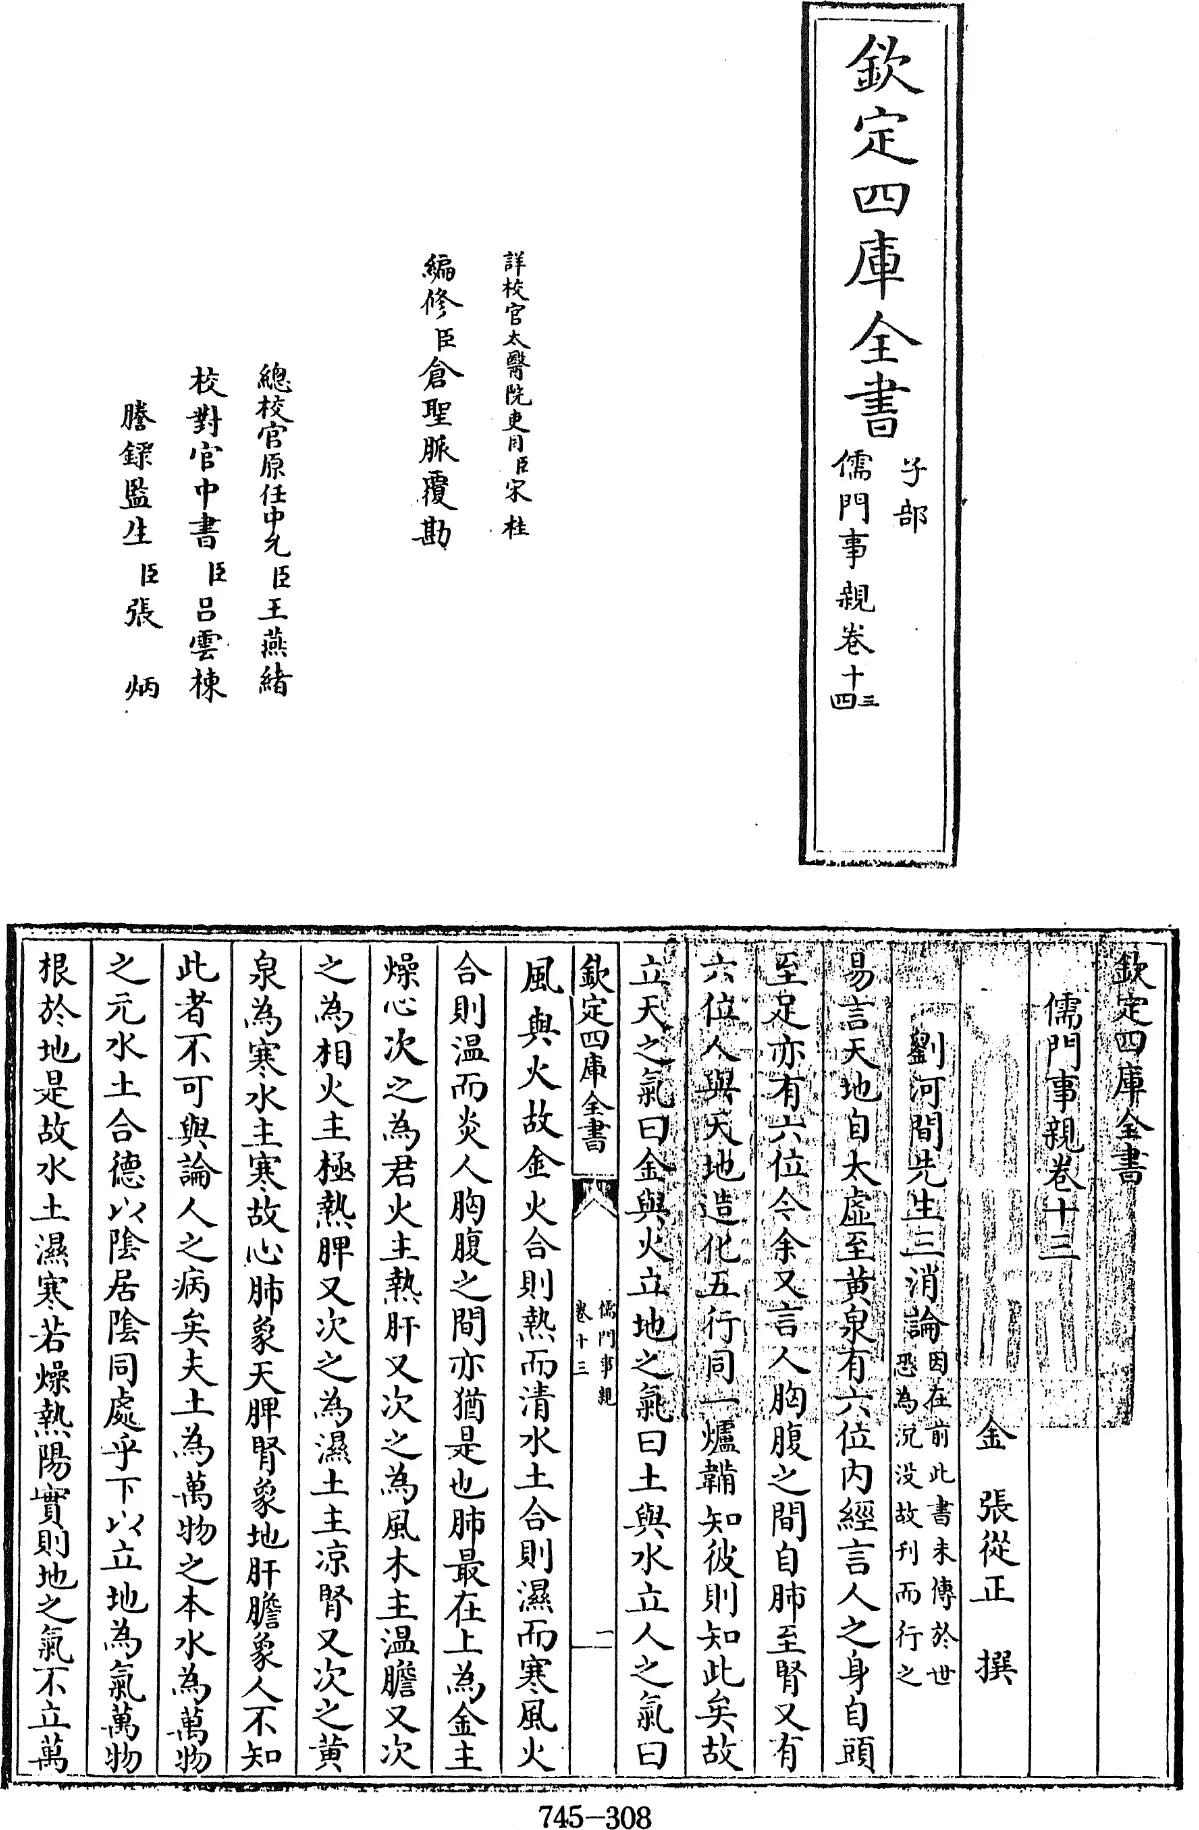 欽定四庫全書
子部
儒門事親卷十三
四
詳校官太醫院吏目臣宋桂
編修臣倉聖脈覆勘
總校官原任中允臣王燕緒
校對官中書臣呂雲棟
謄錄監生臣張炳
欽定四庫全書
儒門事親卷十三
金 張從正 撰
劉河間先生三消論因在前此書未傳於世
恐為沉没故刊而行之
易言天地自太虛至黄泉有六位内經言人之身自頭
至足亦有六位今余又言人胸腹之間自肺至腎又有
六位人與天地造化五行同一爐鞴知彼則知此矣故
立天之氣曰金與火立地之氣曰土與水立人之氣曰
欽定四庫全書
儒門事親
卷十三
一
風與火故金火合則熱而清水土合則濕而寒風火
合則温而炎人胸腹之間亦猶是也肺最在上為金主
燥心次之為君火主熱肝又次之為風木主温膽又次
之為相火主極熱脾又次之為濕土主凉腎又次之黄
泉為寒水主寒故心肺象天脾腎象地肝膽象人不知
此者不可與論人之病矣夫土為萬物之本水為萬物
之元水土合德以陰居陰同處乎下以立地為氣萬物
根於地是故水土濕寒若燥熱陽實則地之氣不立萬
745-308